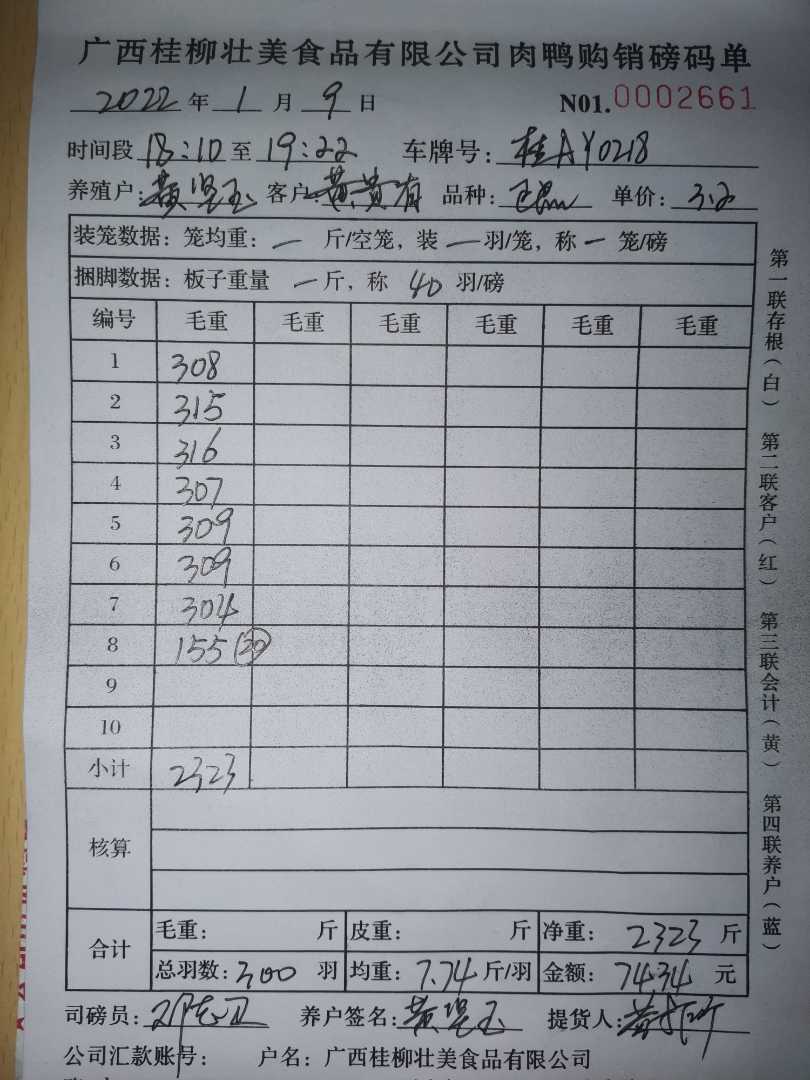 广西桂柳壮美食品有限公司肉鸭购销磅码单
2022年1月9日 N01.0002661
时间段18:10至19:22 车牌号:桂AY0218
养殖户:黄坚玉 客户:黄黄有 品种: 单价:3.2
装笼数据:笼均重:一斤/空笼,装一羽/笼,称一笼/磅
捆脚数据:板子重量一斤,称40羽/磅
编号 毛重 毛重 毛重 毛重 毛重 毛重
1 308
2 315
3 316
4 307
5 309
6 309
7 304
8 155(20)
9
10
小计 2323
核算
合计 毛重: 斤 皮重: 斤 净重:2323斤
总羽数:300羽 均重:7.74斤/羽 金额:7434元
司磅员: 养户签名:黄坚玉 提货人:
公司汇款账号: 户名:广西桂柳壮美食品有限公司
第一联存根(白) 第二联客户(红) 第三联会计(黄) 第四联养户(蓝)